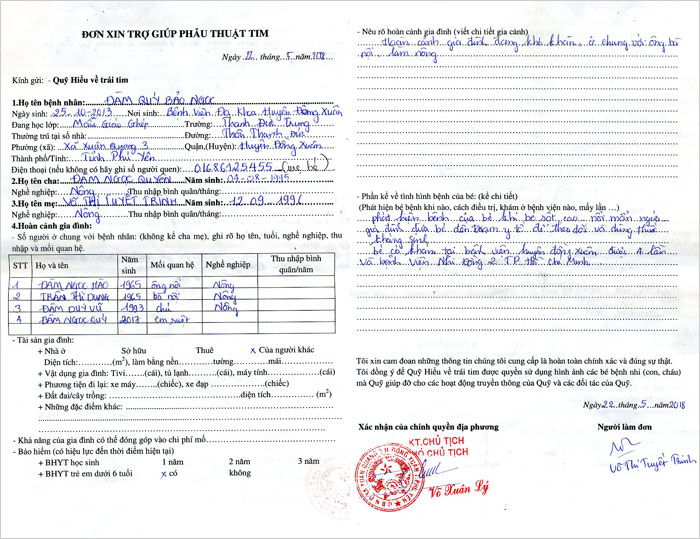 ĐƠN XIN TRỢ GIÚP PHẪU THUẬT TIM
Ngày 22 tháng 5 năm 2018
Kính gửi: - Quỹ Hiểu về trái tim
1.Họ tên bệnh nhân: ĐÀM QUÝ BẢO NGỌC
Ngày sinh: 25.10.2013 Nơi sinh: Bệnh Viện Đa Khoa Huyện Đồng Xuân
Đang học lớp: Mẫu Giáo Ghép Trường: Thạnh Đức Trung
Thường trú tại số nhà: Đường: Thôn Thạnh Đức
Phường (xã): Xã Xuân Quang 3 Quận,(Huyện): Huyện Đồng Xuân
Thành phố/Tỉnh: Tỉnh Phú Yên
Điện thoại (nếu không có hãy ghi số người quen): 01686125455 (mẹ bé)
2.Họ tên cha: ĐÀM NGỌC QUYỀN Năm sinh: 07.08.1995
Nghề nghiệp: Nông Thu nhập bình quân/tháng:
3.Họ tên mẹ: VÕ THỊ TUYẾT TRINH Năm sinh: 12.09.1996
Nghề nghiệp: Nông Thu nhập bình quân/tháng:
4.Hoàn cảnh gia đình:
- Số người ở chung với bệnh nhân: (không kể cha mẹ), ghi rõ họ tên, tuổi, nghề nghiệp, thu
nhập và mối quan hệ.
STT Họ và tên Năm sinh Mối quan hệ Nghề nghiệp Thu nhập bình quân/năm
1 ĐÀM NGỌC HÀO 1965 ông nội Nông
2 TRẦN THỊ DUNG 1965 bà nội Nông
3 ĐÀM DUY VŨ 1993 chú Nông
4 ĐÀM NGỌC QUÝ 2017 em ruột
- Tài sản gia đình:
+ Nhà ở Sở hữu Thuê x Của người khác
Diện tích: (m2), làm bằng nền tường mái
+ Vật dụng gia đình: Tivi (cái), tủ lạnh (cái), máy tính (cái)
+ Phương tiện đi lại: xe máy (chiếc), xe đạp (chiếc)
+ Đất đai/cây trồng: diện tích (m2)
+ Những đặc điểm khác:
- Khả năng của gia đình có thể đóng góp vào chi phí mổ
- Bảo hiểm (có hiệu lực đến thời điểm hiện tại)
+ BHYT học sinh 1 năm 2 năm 3 năm
+ BHYT trẻ em dưới 6 tuổi x có không
- Nêu rõ hoàn cảnh gia đình (viết chi tiết gia cảnh)
Hoàn cảnh gia đình đang khó khăn ở chung với ông bà
nội, làm nông
- Phần kể về tình hình bệnh của bé: (kể chi tiết)
(Phát hiện bé bệnh khi nào, cách điều trị, khám ở bệnh viện nào, mấy lần …)
phát hiện bệnh của bé khi bé sốt cao, nổi mẩn ngứa
gia đình đưa bé đến trạm y tế để theo dõi và dùng thuốc
kháng sinh
bé có khám tại bệnh viện huyện đồng xuân được 4 lần
và bệnh viện Nhi Đồng 2 T.P Hồ Chí Minh
Tôi xin cam đoan những thông tin chúng tôi cung cấp là hoàn toàn chính xác và đúng sự thật.
Tôi đồng ý để Quỹ Hiểu về trái tim được quyền sử dụng hình ảnh các bé bệnh nhi (con, cháu)
mà Quỹ giúp đỡ cho các hoạt động truyền thông của Quỹ và các đối tác của Quỹ.
Ngày 22 tháng 5 năm 2018
Xác nhận của chính quyền địa phương Người làm đơn
KT.CHỦ TỊCH
PHÓ CHỦ TỊCH
Võ Xuân Lý
Võ Thị Tuyết Trinh